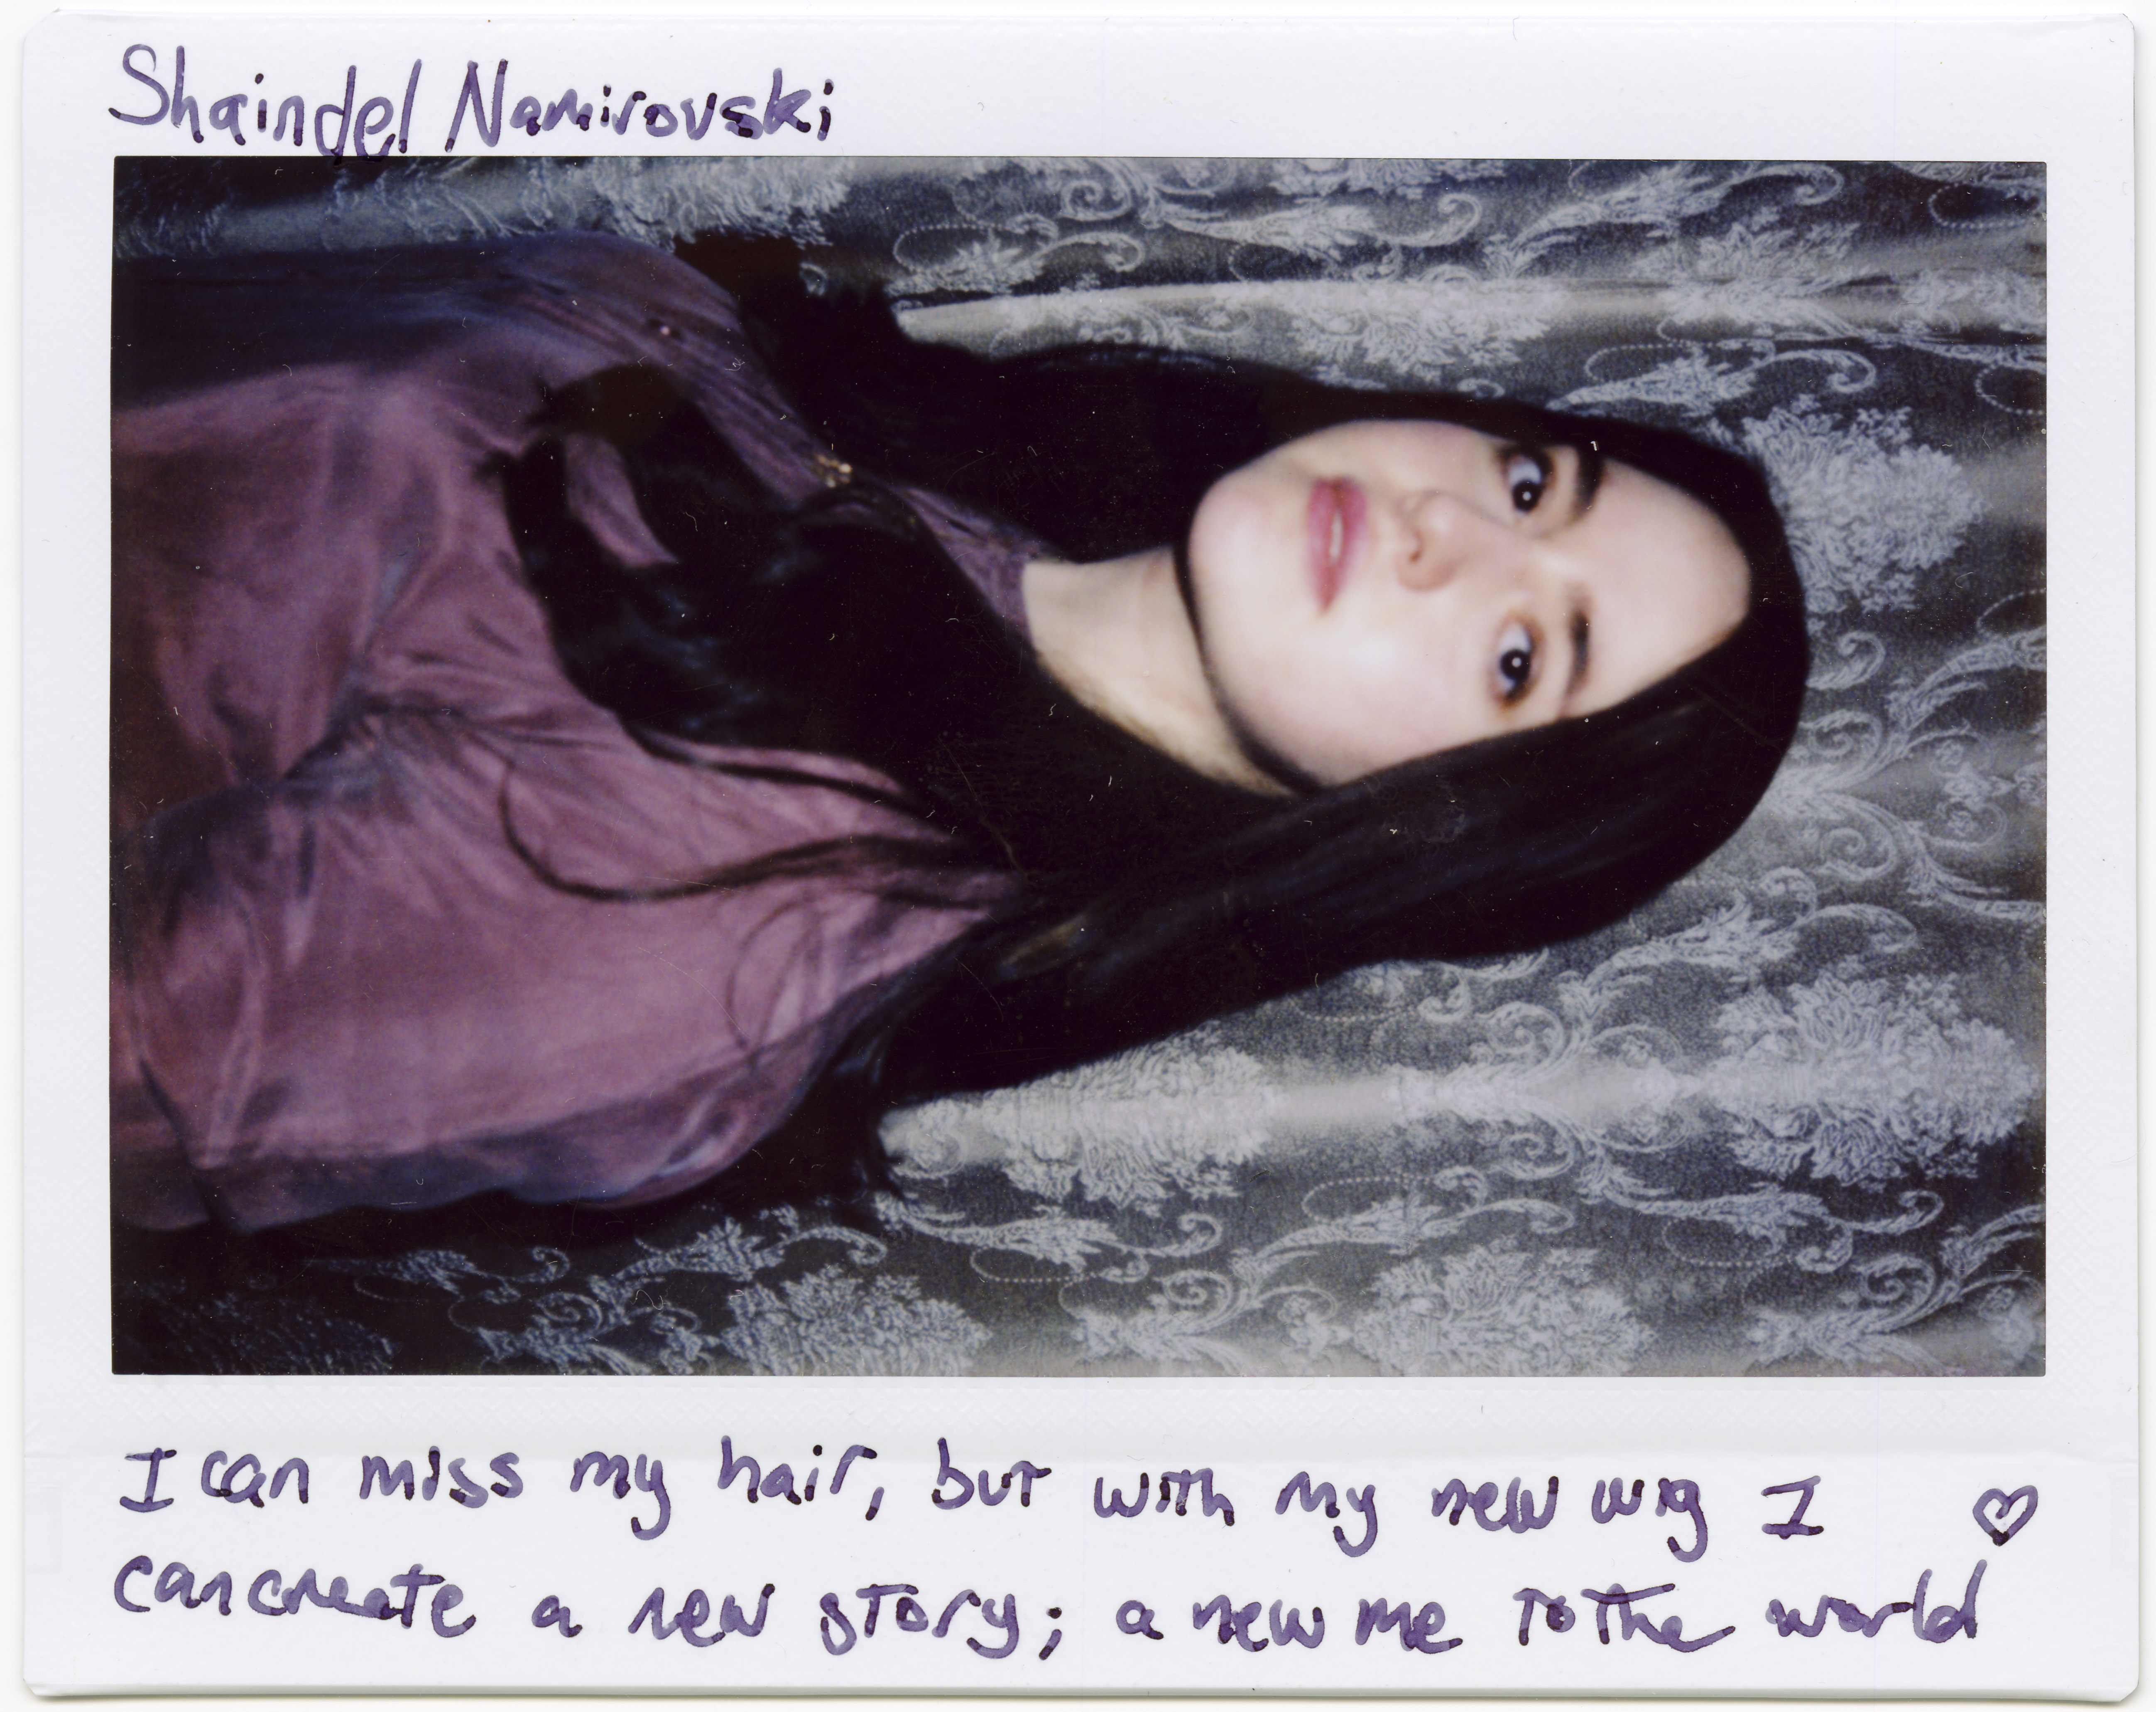 Shaindel Namirovski
I can miss my hair, but with my new wig I ♡
can create a new story; a new me to the world